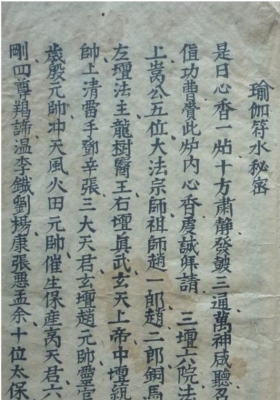 瑜伽符水秘密
是日心香一炷十方肅静發皷三通萬神咸聽
值功曹賫此炉内心香虔誠拜請 三壇六院法
上嵩公五位大法宗師祖師趙一郎趙二郎銅馬
左壇法主龍樹醫王右壇真武玄天上帝中壇統
帥上清雷手鄧辛張三大天君玄壇趙元帥靈官
歲殷元帥冲天風火田元帥催生保產高天君六
剛四尊羯諦温李鐵劉楊康張悪孟余十位太保